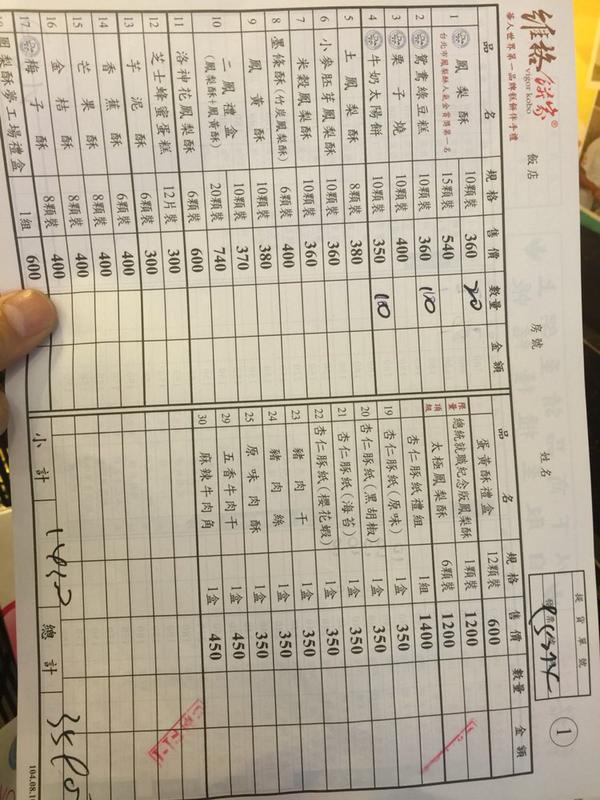 維格餅家®
vigor kobo
華人世界第一品牌糕餅伴手禮
飯店
房號
姓名
提貨單號
1
品名 規格 售價 數量 金額
1 鳳梨酥 10顆裝 360 20
台北市鳳梨酥人氣金賞獎第一名 15顆裝 540
2 鴛鴦綠豆糕 10顆裝 360 10
3 栗子燒 10顆裝 400
4 牛奶太陽餅 10顆裝 350 10
5 土鳳梨酥 8顆裝 380
6 小麥胚芽鳳梨酥 10顆裝 360
7 米穀鳳梨酥 10顆裝 360
8 墨條酥(竹炭鳳梨酥) 6顆裝 400
9 鳳黃酥 10顆裝 380
10 二鳳禮盒 10顆裝 370
(鳳梨酥+鳳黃酥) 20顆裝 740
11 洛神花鳳梨酥 6顆裝 600
12 芝士蜂蜜蛋糕 12片裝 300
13 芋泥酥 6顆裝 300
14 香蕉酥 6顆裝 400
15 芒果酥 8顆裝 400
16 金桔酥 8顆裝 400
17 梅子酥 8顆裝 400
鳳梨酥夢工場禮盒 1組 600
品名 規格 售價 數量 金額
蛋黃酥禮盒 12顆裝 600
限量 總統就職紀念版鳳梨酥 1顆裝 1200
頂級 太極鳳梨酥 6顆裝 1200
杏仁豚紙禮組 1組 1400
19 杏仁豚紙(原味) 1盒 350
20 杏仁豚紙(黑胡椒) 1盒 350
21 杏仁豚紙(海苔) 1盒 350
22 杏仁豚紙(櫻花蝦) 1盒 350
23 豬肉干 1盒 350
24 豬肉絲 1盒 350
25 原味肉酥 1盒 350
29 五香牛肉干 1盒 450
30 麻辣牛肉角 1盒 450
小計
總計
104.08.1